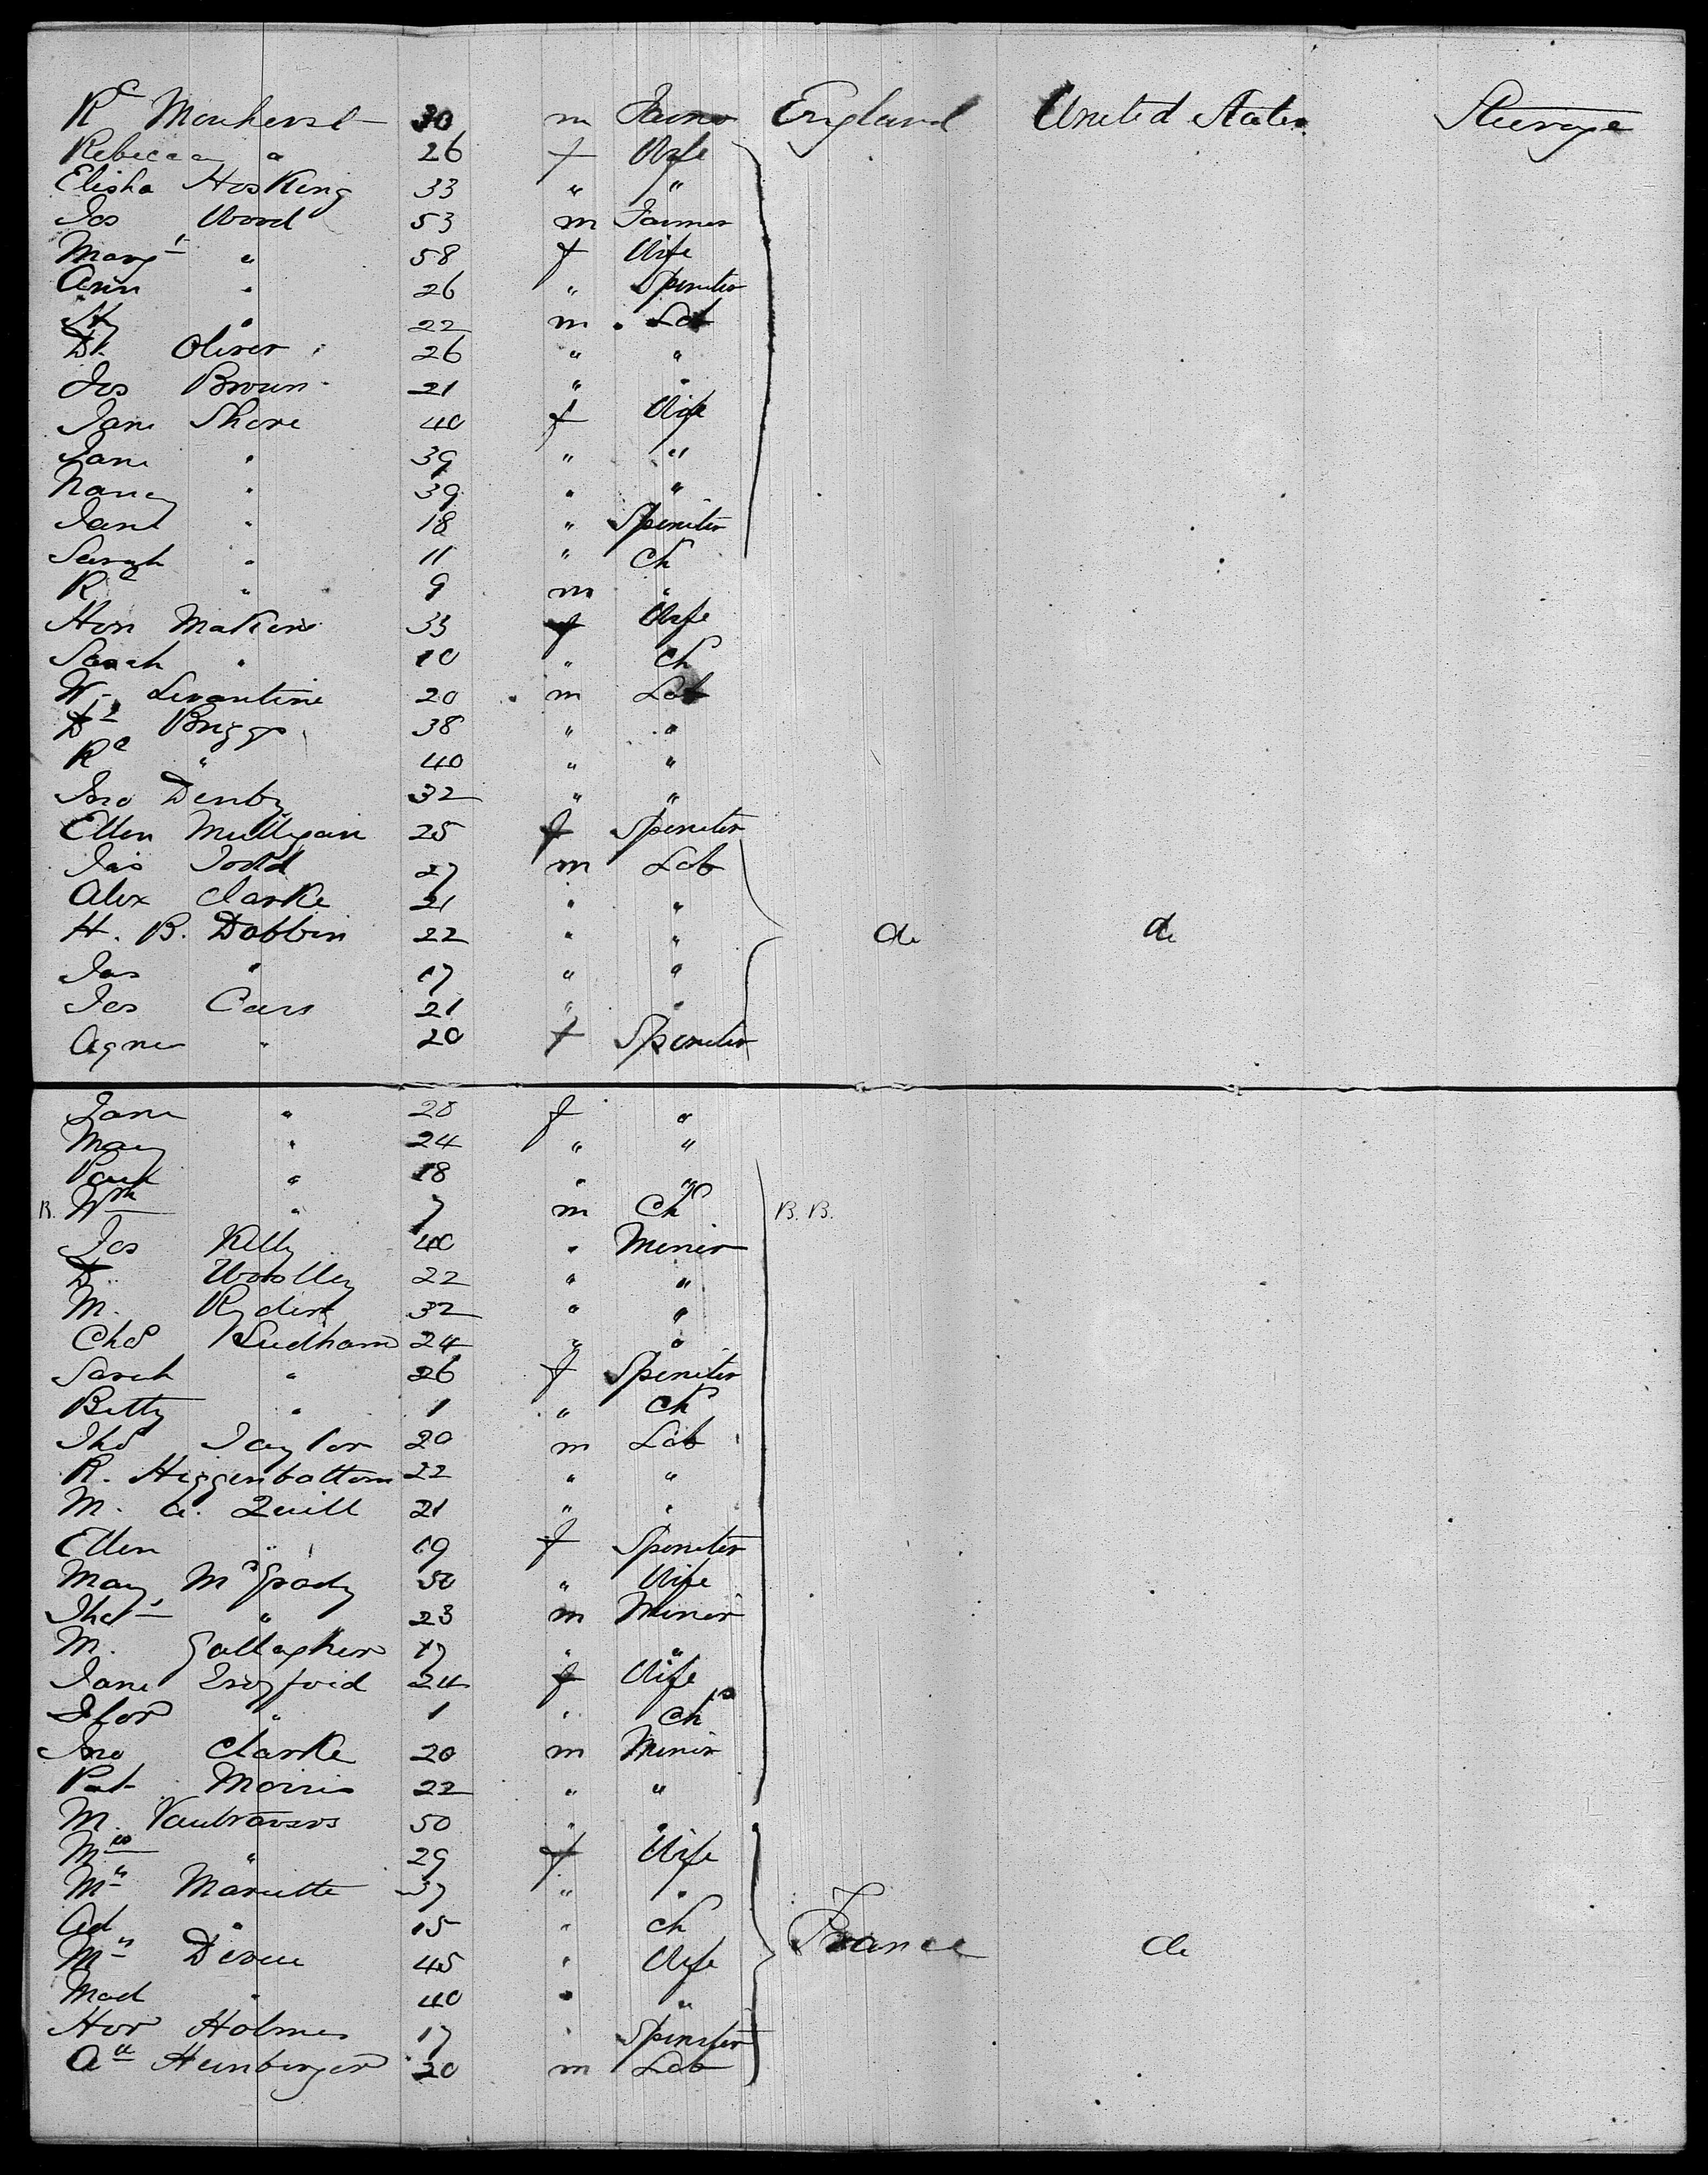 Rd Monherst 30 m Farmr England United States Steerage
Rebecca " 26 f Wife
Elisha Hosking 33 " "
Jos Wood 53 m Farmer
Margt " 58 f Wife
Ann " 26 " Spinster
" 22 m Lab
Dl. Oliver 26 " "
Jos Brown 21 " "
Jane Shore 40 f Wife
Jane " 39 " "
Nancy " 39 " "
Jane " 18 " Spinster
Sarah " 11 " Ch
Rd " 9 m "
Hon Makins 33 f Wife
Sarah " 10 " Ch
Wm Levantine 20 m Lab
Dl Briggs 38 " "
Rd " 40 " "
Jno Denby 32 " "
Ellen Mulligan 25 f Spinster
Jas Todd 27 m Lab
Alex Clarke 21 " "
H. B. Dobbin 22 " " do do
Jas " 17 " "
Jos Cars 21 " "
Agnes " 20 f Spinster
Jane " 28 f "
Mary " 24 " "
" 18 " "
B. Wm " 7 m Ch B. B.
Jos Kelly 40 " Miner
D. Woolley 22 " "
M. Ryder 32 " "
Chs Ludham 24 " "
Sarah " 26 f Spinster
Betty " 1 " Ch
Ths Taylor 20 m Lab
R. Higgenbottom 22 " "
M. A. Quill 21 " "
Ellen " 19 f Spinster
Mary McGrady 50 " Wife
Thos " 23 m Miner
M. Gallagher 17 " "
Jane 24 f Wife
" 1 " Ch
Jno Clarke 20 m Miner
Pat Morris 22 " "
M. Vautravers 50 " "
Mrs " 29 f Wife
Mrs Mariette 37 " "
Ad " 15 " Ch France do
Mrs Derue 45 " Wife
Mad " 40 " "
Hor Holmes 17 " Spinster
Au Heinberger 20 m Lab